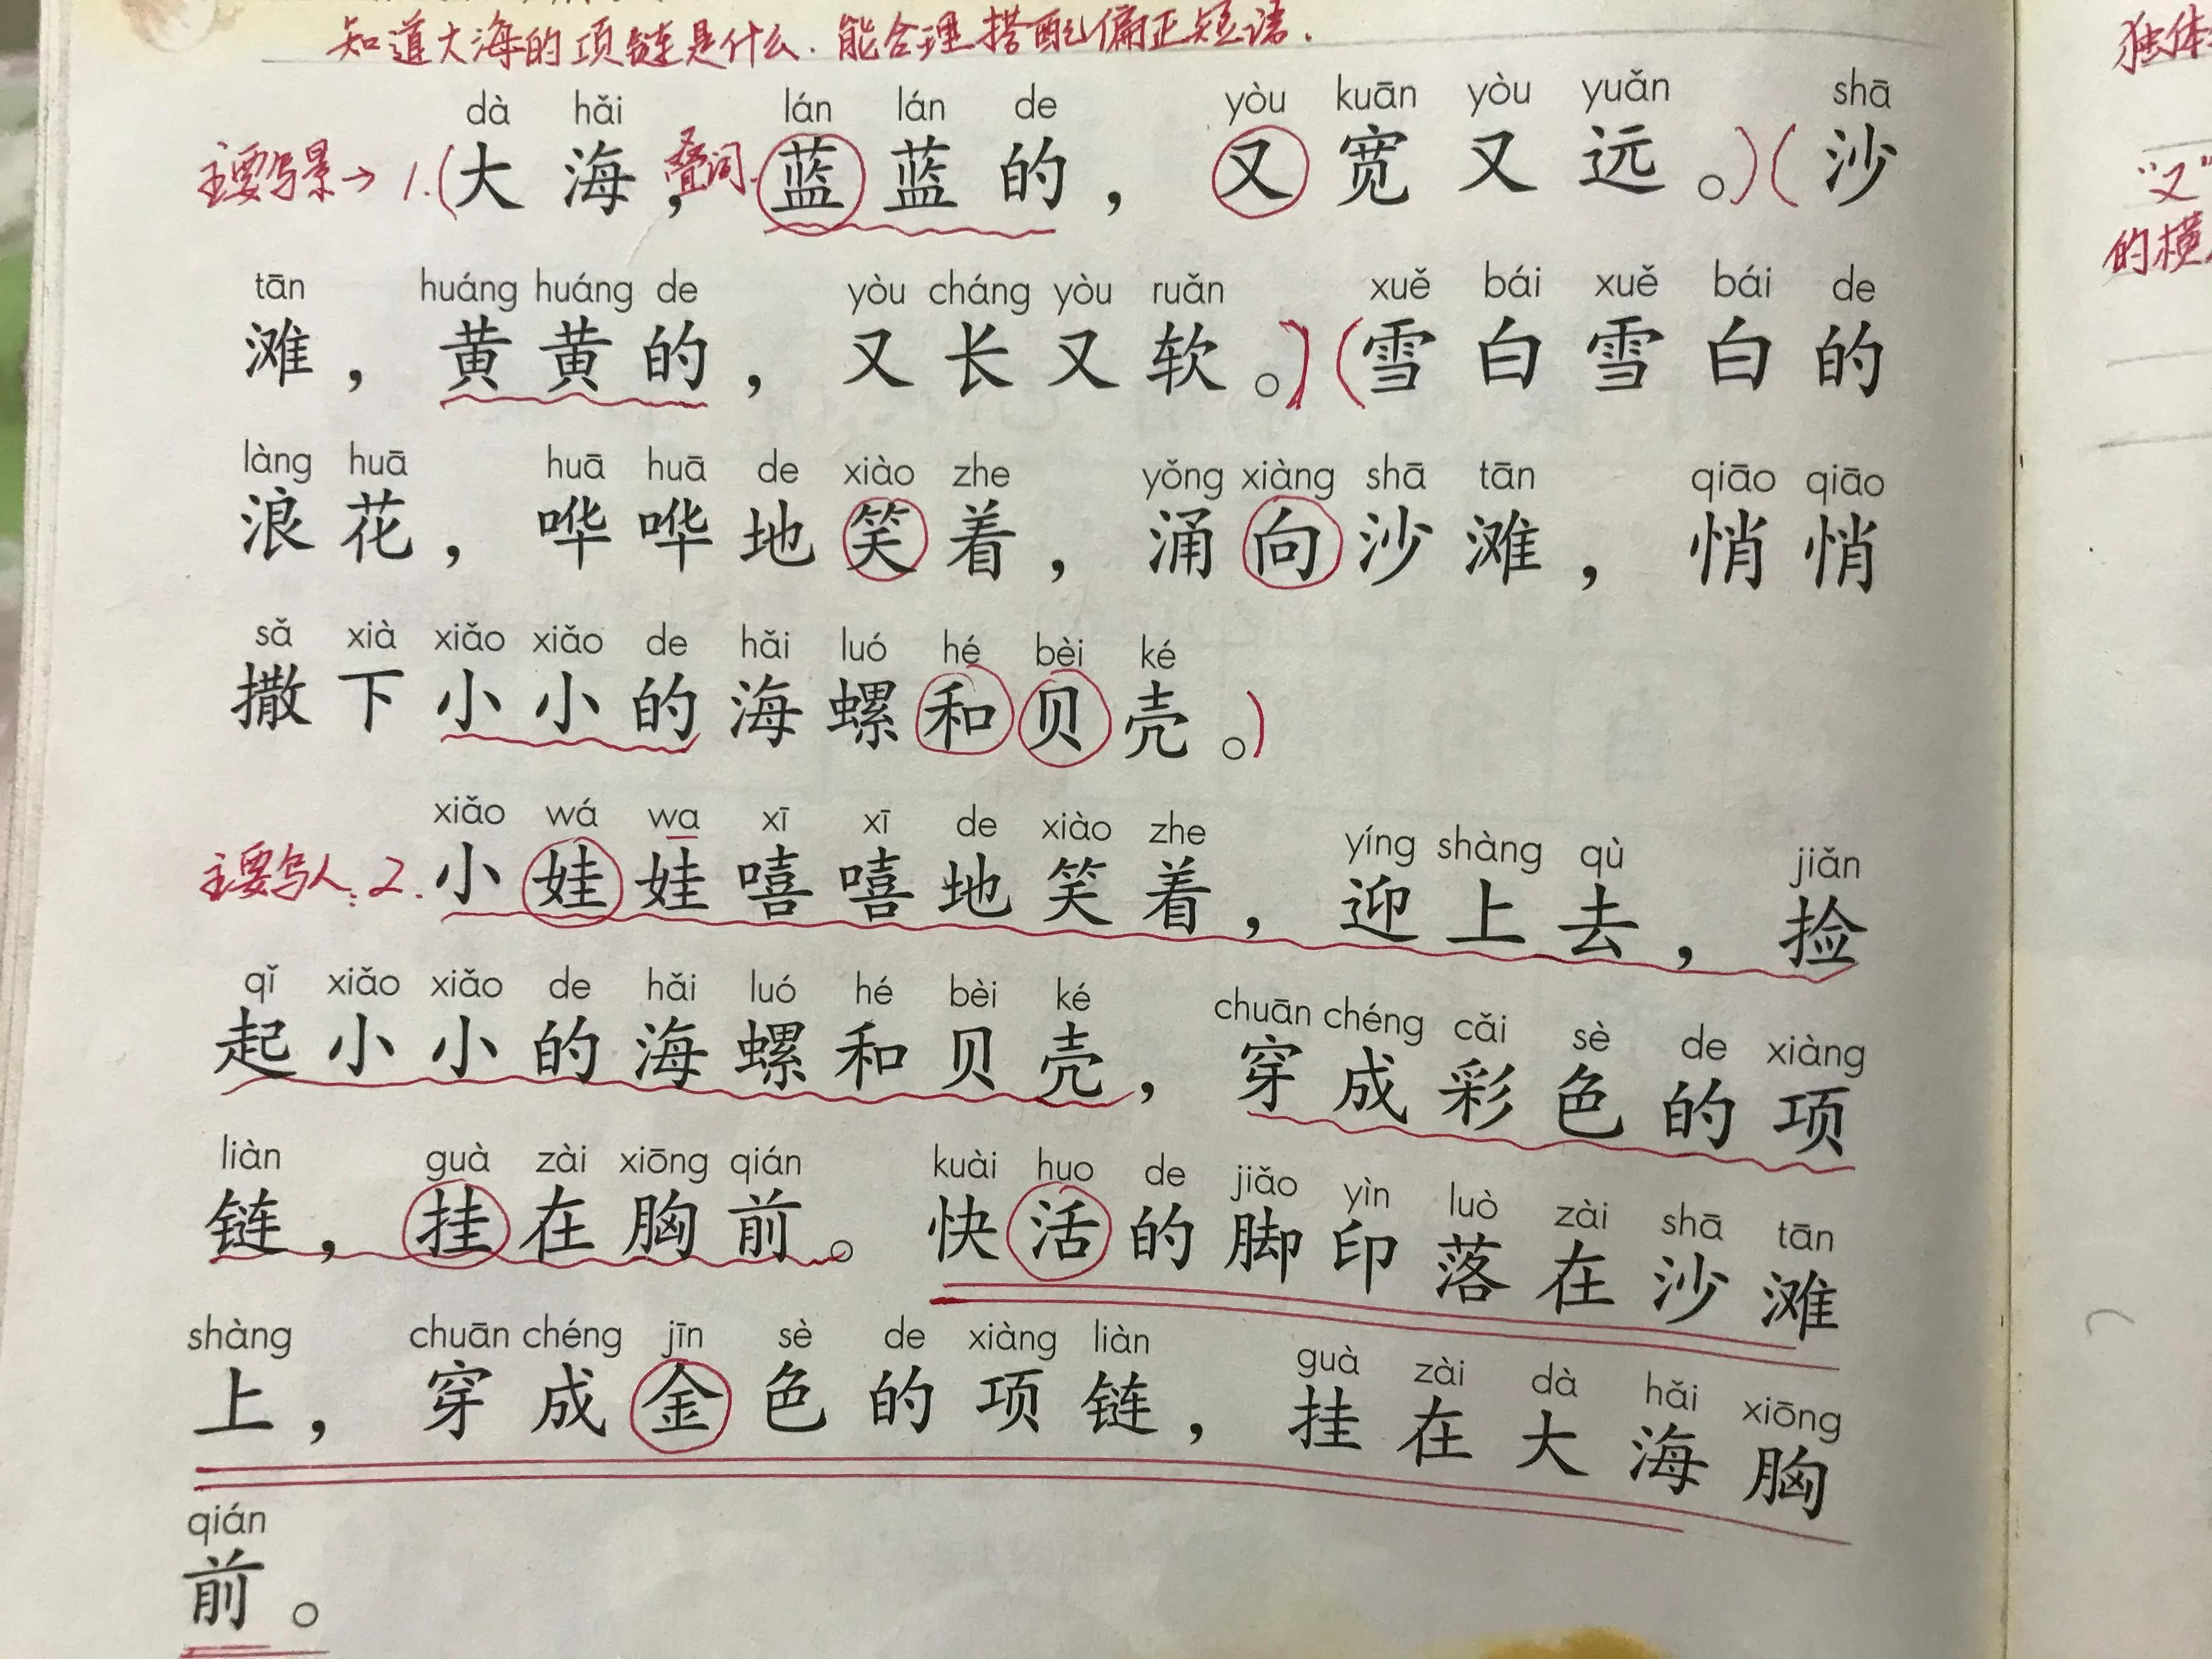 知道大海的项链是什么.能合理搭配偏正短语.
独体
dà hǎi lán lán de yòu kuān yòu yuǎn shā
主要写景→ 1.(大海,叠词.蓝蓝的，又宽又远。)(沙
“又”
的横
tān huáng huáng de yòu cháng yòu ruǎn xuě bái xuě bái de
滩，黄黄的，又长又软。)(雪白雪白的
làng huā huā huā de xiào zhe yǒng xiàng shā tān qiāo qiāo
浪花，哗哗地笑着，涌向沙滩，悄悄
sǎ xià xiǎo xiǎo de hǎi luó hé bèi ké
撒下小小的海螺和贝壳。)
xiǎo wá wa xī xī de xiào zhe yíng shàng qù jiǎn
主要写人:2.小娃娃嘻嘻地笑着，迎上去，捡
qǐ xiǎo xiǎo de hǎi luó hé bèi ké chuān chéng cǎi sè de xiàng
起小小的海螺和贝壳，穿成彩色的项
liàn guà zài xiōng qián kuài huo de jiǎo yìn luò zài shā tān
链，挂在胸前。快活的脚印落在沙滩
shàng chuān chéng jīn sè de xiàng liàn guà zài dà hǎi xiōng
上，穿成金色的项链，挂在大海胸
qián
前。